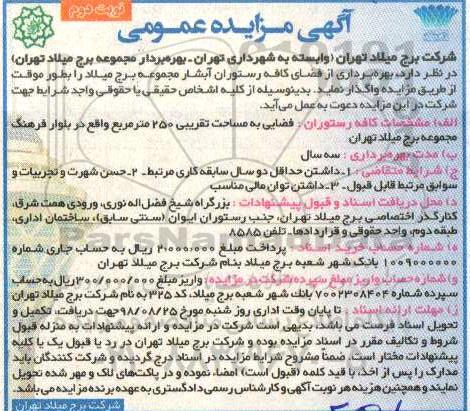 نوبت دوم
آگهی مزایده عمومی
شرکت برج میلاد تهران (وابسته به شهرداری تهران - بهره‌بردار مجموعه برج میلاد تهران)
در نظر دارد، بهره‌برداری از فضای کافه رستوران آبشار مجموعه برج میلاد را بطور موقت
از طریق مزایده واگذار نماید. بدینوسیله از کلیه اشخاص حقیقی یا حقوقی واجد شرایط جهت
شرکت در این مزایده دعوت به عمل می‌آید.
الف) مشخصات کافه رستوران : فضایی به مساحت تقریبی ۲۵۰ مترمربع واقع در بلوار فرهنگ
مجموعه برج میلاد تهران
ب) مدت بهره‌برداری : سه سال
ج) شرایط متقاضی : ۱ـ داشتن حداقل دو سال سابقه کاری مرتبط ـ ۲ـ حسن شهرت و تجربیات و
سوابق مرتبط قابل قبول - ۳ـ داشتن توان مالی مناسب
د) محل دریافت اسناد و قبول پیشنهادات : بزرگراه شیخ فضل‌اله نوری، ورودی همت شرق،
کنارگذر اختصاصی برج میلاد تهران، جنب رستوران ایوان (سنتی سابق)، ساختمان اداری،
طبقه دوم، واحد حقوقی و قراردادها - تلفن ۸۵۸۵
ه) شماره حساب خرید اسناد : پرداخت مبلغ ۲،۰۰۰،۰۰۰ ریال به حساب جاری شماره
۱۰۰۹۰۰۰۰۰۰ بانک شهر شعبه برج میلاد بنام شرکت برج میلاد تهران
و) شماره حساب واریز مبلغ سپرده شرکت در مزایده: واریز مبلغ ۳۰۰/۰۰۰/۰۰۰ ریال به حساب
سپرده شماره ۷۰۰۲۳۰۸۴۰۴ بانک شهر شعبه برج میلاد، کد ۳۲۵ به نام شرکت برج میلاد تهران
ز) مهلت ارائه اسناد : تا پایان وقت اداری روز شنبه مورخ ۹۸/۰۸/۲۵ جهت دریافت، تکمیل و
تحویل اسناد فرصت می باشد، بدیهی است شرکت در مزایده و ارائه پیشنهادات به منزله قبول
شروط و تکالیف مقرر در اسناد مزایده بوده و شرکت برج میلاد تهران در رد یا قبول یک یا کلیه
پیشنهادات مختار است. ضمناً مشروح شرایط مزایده در اسناد درج گردیده و شرکت کنندگان باید
مدارک را پس از اخذ، با قید کلمه (قبول است) امضا، نموده و در پاکت‌های لاک و مهر شده تحویل
نمایند و همچنین هزینه هر نوبت آگهی و کارشناس رسمی دادگستری به عهده برنده مزایده می‌باشد.
شرکت برج میلاد تهران